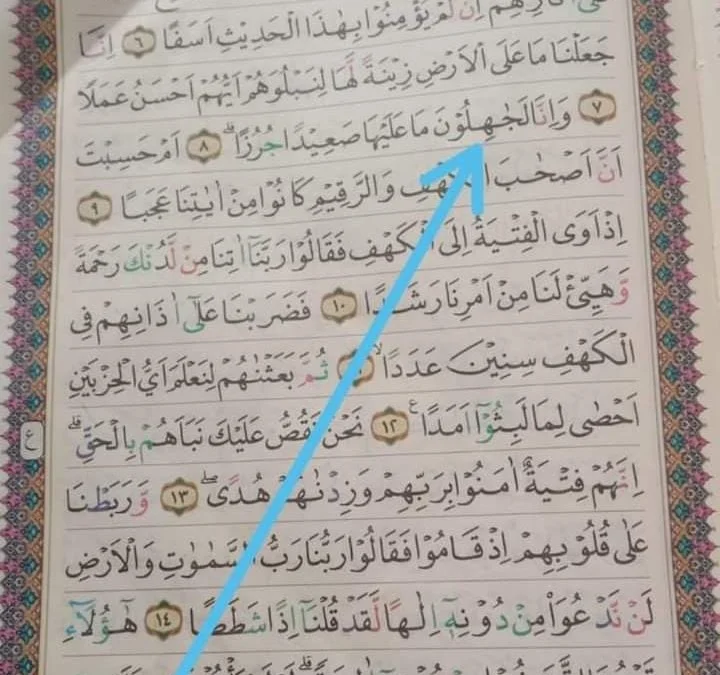 اِنْ لَّمْ يُؤْمِنُوْا بِهٰذَا الْحَدِيْثِ اَسَفًا ٦ اِنَّا
جَعَلْنَا مَا عَلَى الْاَرْضِ زِيْنَةً لَّهَا لِنَبْلُوَهُمْ اَيُّهُمْ اَحْسَنُ عَمَلًا
٧ وَاِنَّا لَجٰهِلُوْنَ مَا عَلَيْهَا صَعِيْدًا جُرُزًا ۗ ٨ اَمْ حَسِبْتَ
اَنَّ اَصْحٰبَ الْكَهْفِ وَالرَّقِيْمِ كَانُوْا مِنْ اٰيٰتِنَا عَجَبًا ٩
اِذْ اَوَى الْفِتْيَةُ اِلَى الْكَهْفِ فَقَالُوْا رَبَّنَآ اٰتِنَا مِنْ لَّدُنْكَ رَحْمَةً
وَّهَيِّئْ لَنَا مِنْ اَمْرِنَا رَشَدًا ١٠ فَضَرَبْنَا عَلٰٓى اٰذَانِهِمْ فِى
الْكَهْفِ سِنِيْنَ عَدَدًا ۙ ثُمَّ بَعَثْنٰهُمْ لِنَعْلَمَ اَيُّ الْحِزْبَيْنِ
اَحْصٰى لِمَا لَبِثُوْٓا اَمَدًا ࣖ ١٢ نَحْنُ نَقُصُّ عَلَيْكَ نَبَاَهُمْ بِالْحَقِّ ۗ
اِنَّهُمْ فِتْيَةٌ اٰمَنُوْا بِرَبِّهِمْ وَزِدْنٰهُمْ هُدًى ۖ ١٣ وَّرَبَطْنَا
عَلٰى قُلُوْبِهِمْ اِذْ قَامُوْا فَقَالُوْا رَبُّنَا رَبُّ السَّمٰوٰتِ وَالْاَرْضِ
لَنْ نَّدْعُوَا۟ مِنْ دُوْنِهٖٓ اِلٰهًا لَّقَدْ قُلْنَآ اِذًا شَطَطًا ١٤ هٰٓؤُلَاۤءِ
ع